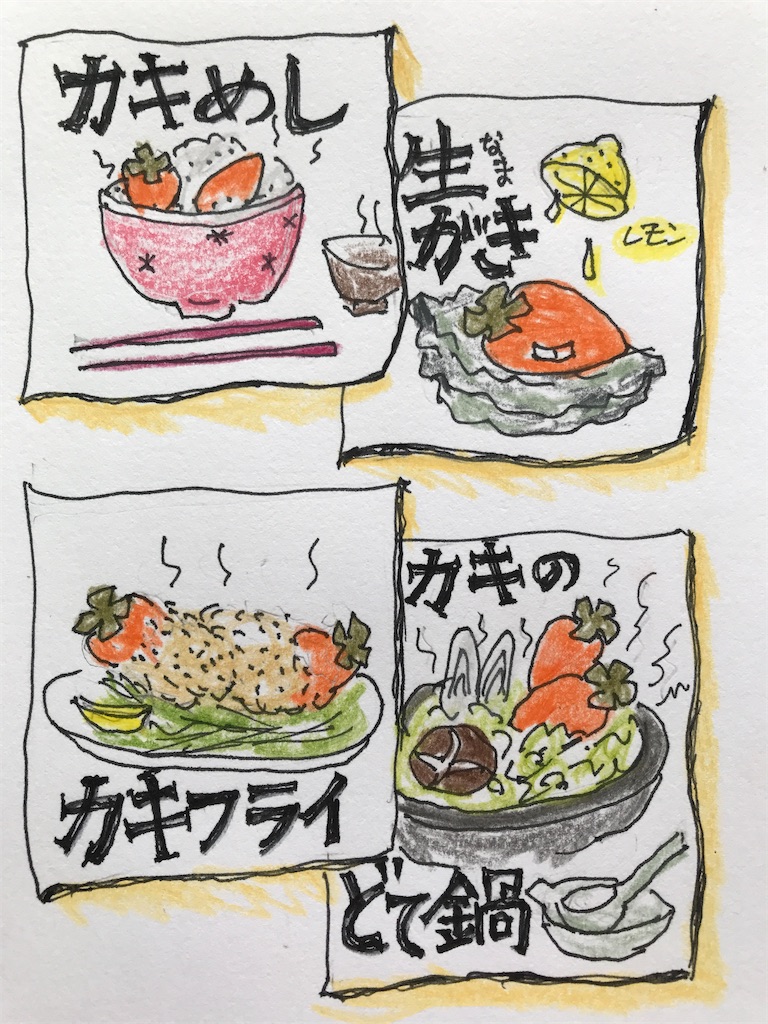 カキめし
生
なま
がき
レモン
カキフライ
カキの
どて鍋